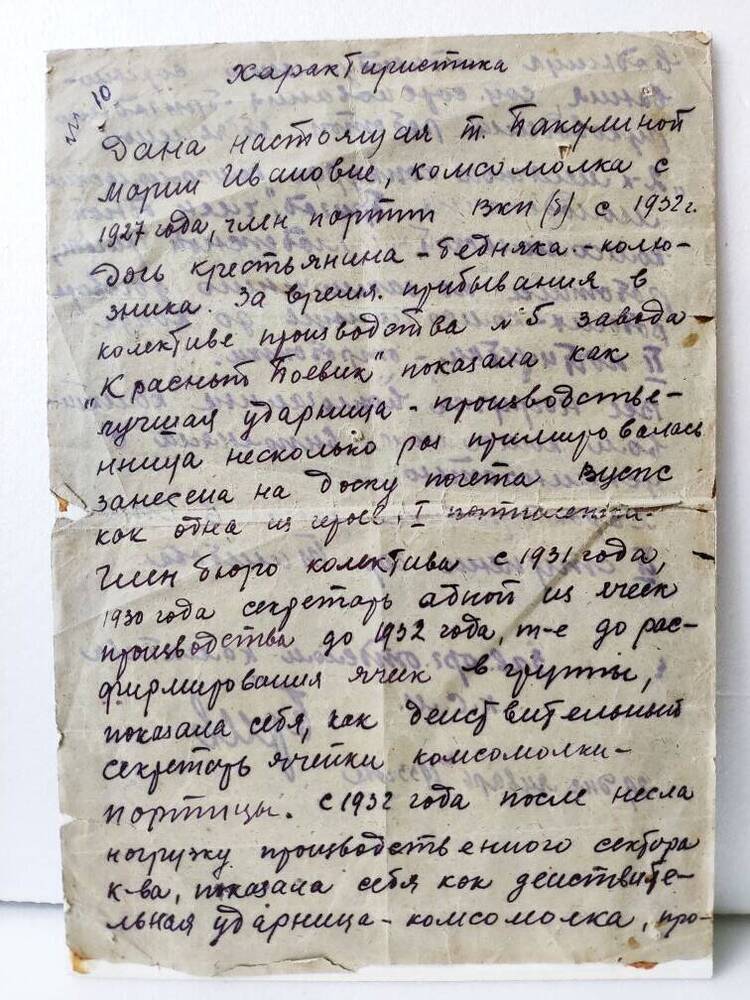 характиристика
10
Дана настоящая т. Бакулиной
Марии Ивановне, комсомолка с
1927 года, член портии ВКП(б) с 1932 г.
дочь крестьянина - бедняка - колхо-
зника. За время прибывания в
колективе производства № 5 завода
"Красный Боевик" показала как
лучшая ударница - производстве-
нница несколько раз примировалась
занесена на доску почета ВЦСПС
как одна из герое. I пятилетки.
Член бюро колектива с 1931 года,
1930 года секретарь адной из ячеек
производства до 1932 года, т-е до рас-
фирмирования ячеек в группы,
показала себя, как деиствительный
секретарь ячейки комсомолки-
портицы. С 1932 года после несла
нагрузку производственного сектора
к-ва, показала себя как деиствите-
льная ударница - комсомолка, про-